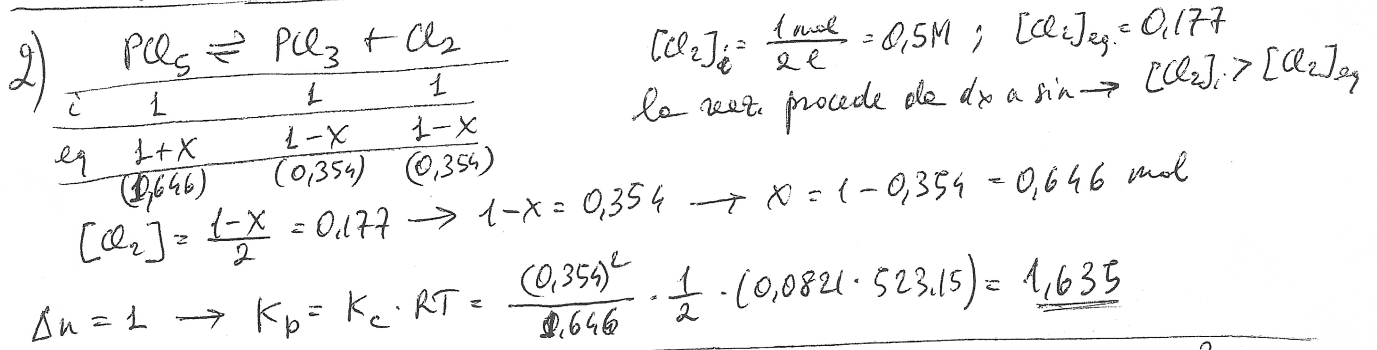 2) PCl₅ ⇌ PCl₃ + Cl₂
i 1 1 1
eq 1+x 1-x 1-x
(1,646) (0,354) (0,354)
[Cl₂]i = 1 mol / 2 l = 0,5M ; [Cl₂]eq. = 0,177
la reaz. procede da dx a sin → [Cl₂]i > [Cl₂]eq
[Cl₂] = (1-x)/2 = 0,177 → 1-x = 0,354 → x = 1-0,354 = 0,646 mol
Δn = 1 → Kp = Kc · RT = (0,354)²/1,646 · 1/2 · (0,0821 · 523,15) = 1,635